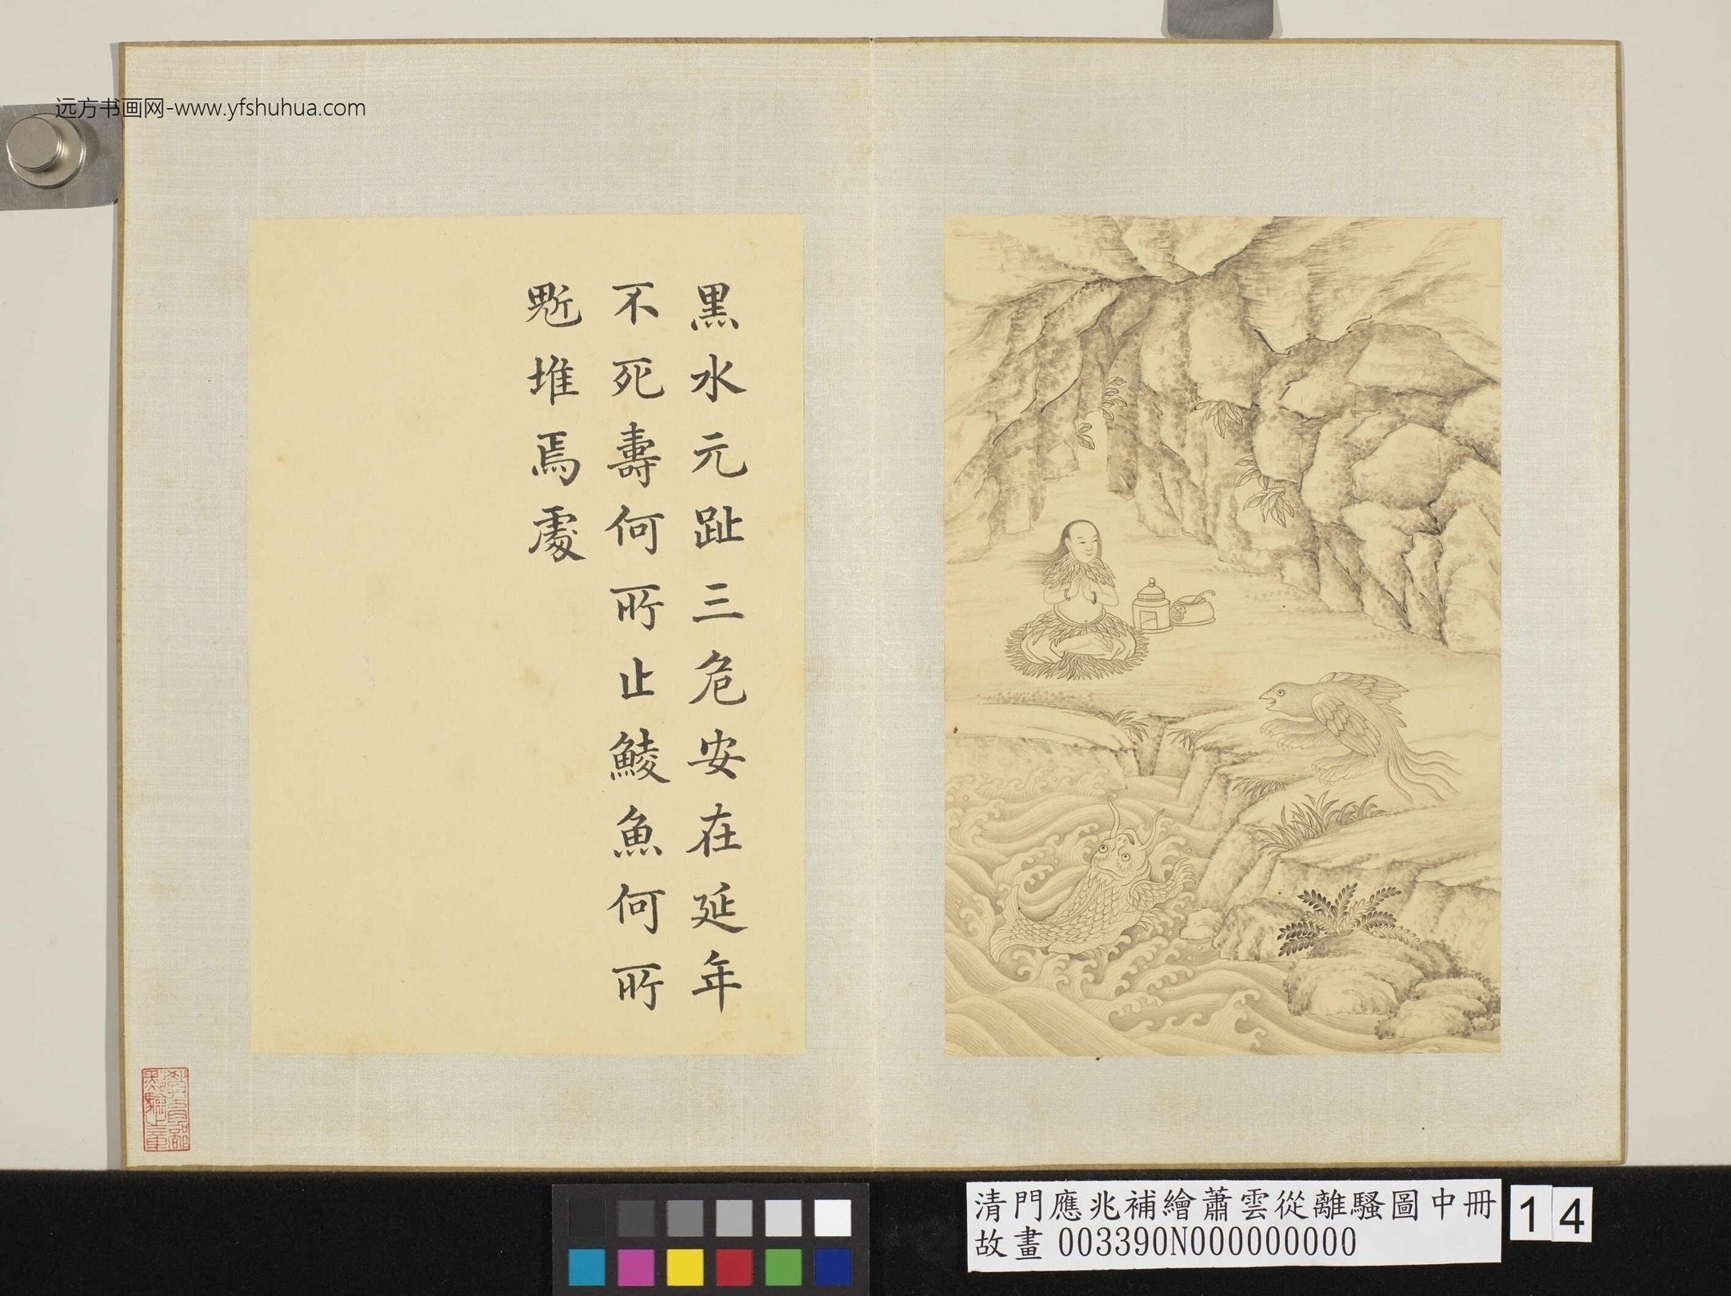 远方书画网-www.yfshuhua.com
黒水元趾三危安在延年
不死壽何所止鯪魚何所
鬿堆焉處
教育部
點驗之章
清門應兆補繪蕭雲從離騷圖中冊
故畫 003390N000000000
14